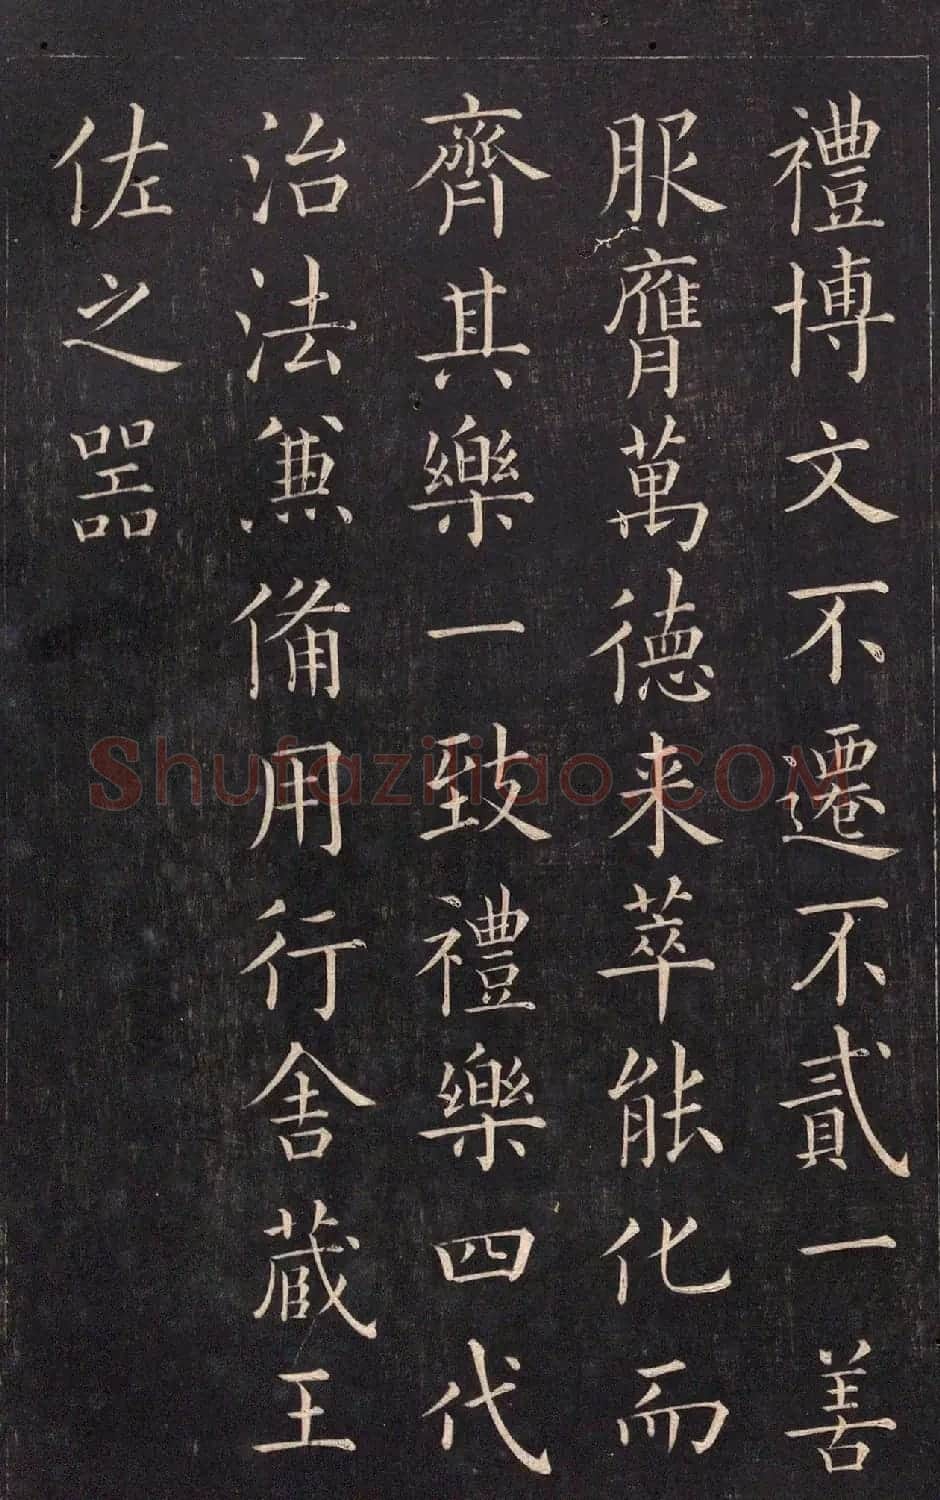 禮博文不遷不貳一善
服膺萬德来萃能化而
齊其樂一致禮樂四代
治法兼備用行舍蔵王
佐之器
Shufaziliao.COM